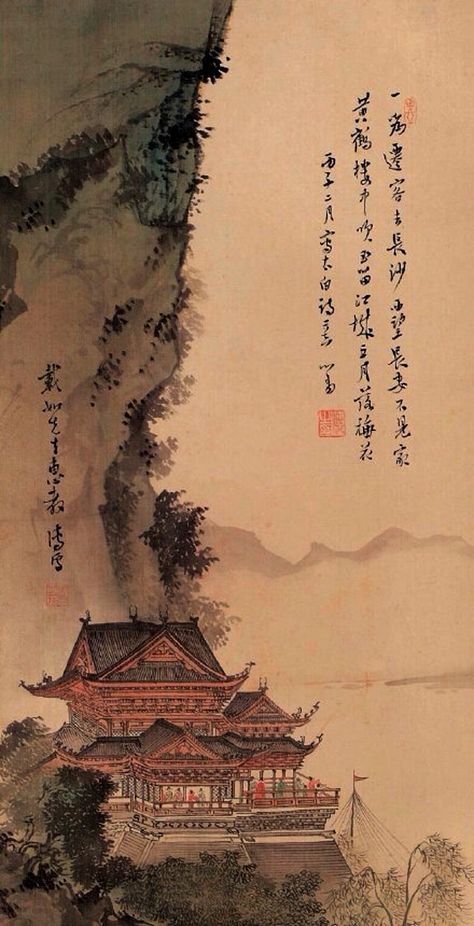 一爲遷客去長沙西望長安不見家
黃鶴樓中吹玉笛江城五月落梅花
丙子二月寫太白詩意心畬
先生惠教溥儒